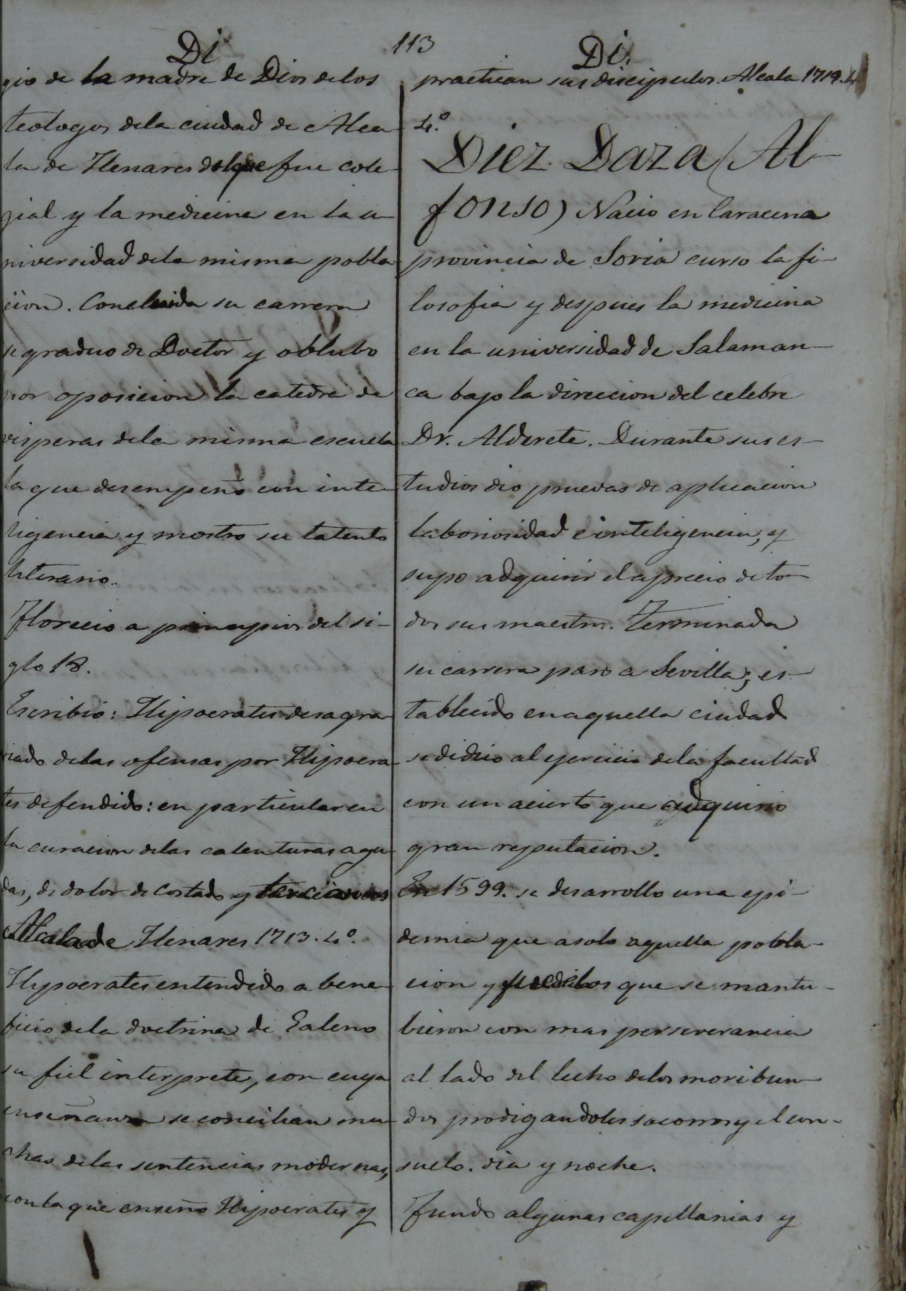 Di
113
Di.
gio de la madre de Dios de los
teologos de la ciudad de Alca
la de Henares del que fue cole
gial y la medicina en la u-
niversidad de la misma pobla
cion. Concluida su carrera
se graduo de Doctor y obtubo
por oposicion la catedra de
visperas de la misma escuela
la que desempeñó con inte-
ligencia y mostro su talento
literario.
Florecio a principios del si-
glo 18.
Escribió: Hipocrates desagra
viado de las ofensas por Hipocra
tes defendido: en particular en
la curacion de las calenturas agu
das, de dolor de costado y tercianas
Alcala de Henares 1713. 4º.
Hypocrates entendido a bene-
ficio de la doctrina de Galeno
su fiel interprete, con cuya
enseñanza se concilian mu-
chas de las sentencias modernas,
con la que enseño Hipocrates y
practican sus discipulos. Alcala 1719.
4.º
Diez Daza (Al-
fonso) Nacio en Caracena
provincia de Soria curso la fi-
losofia y despues la medicina
en la universidad de Salaman-
ca bajo la direccion del celebre
Dr. Alderete. Durante sus es-
tudios dio pruevas de aplicacion
laboriosidad e inteligencia, y
supo adquirir el aprecio de to-
dos sus maestros. Terminada
su carrera paso a Sevilla; es-
tablecido en aquella ciudad
se dedico al ejercicio de la facultad
con un acierto que adquirio
gran reputacion.
En 1599. se desarrollo una epi
demia que asolo aquella pobla-
cion y fue de los que se mantu-
bieron con mas perseverancia
al lado del lecho de los moribun-
dos prodigandoles socorros y el con-
suelo. dia y noche.
Fundo algunas capellanias y